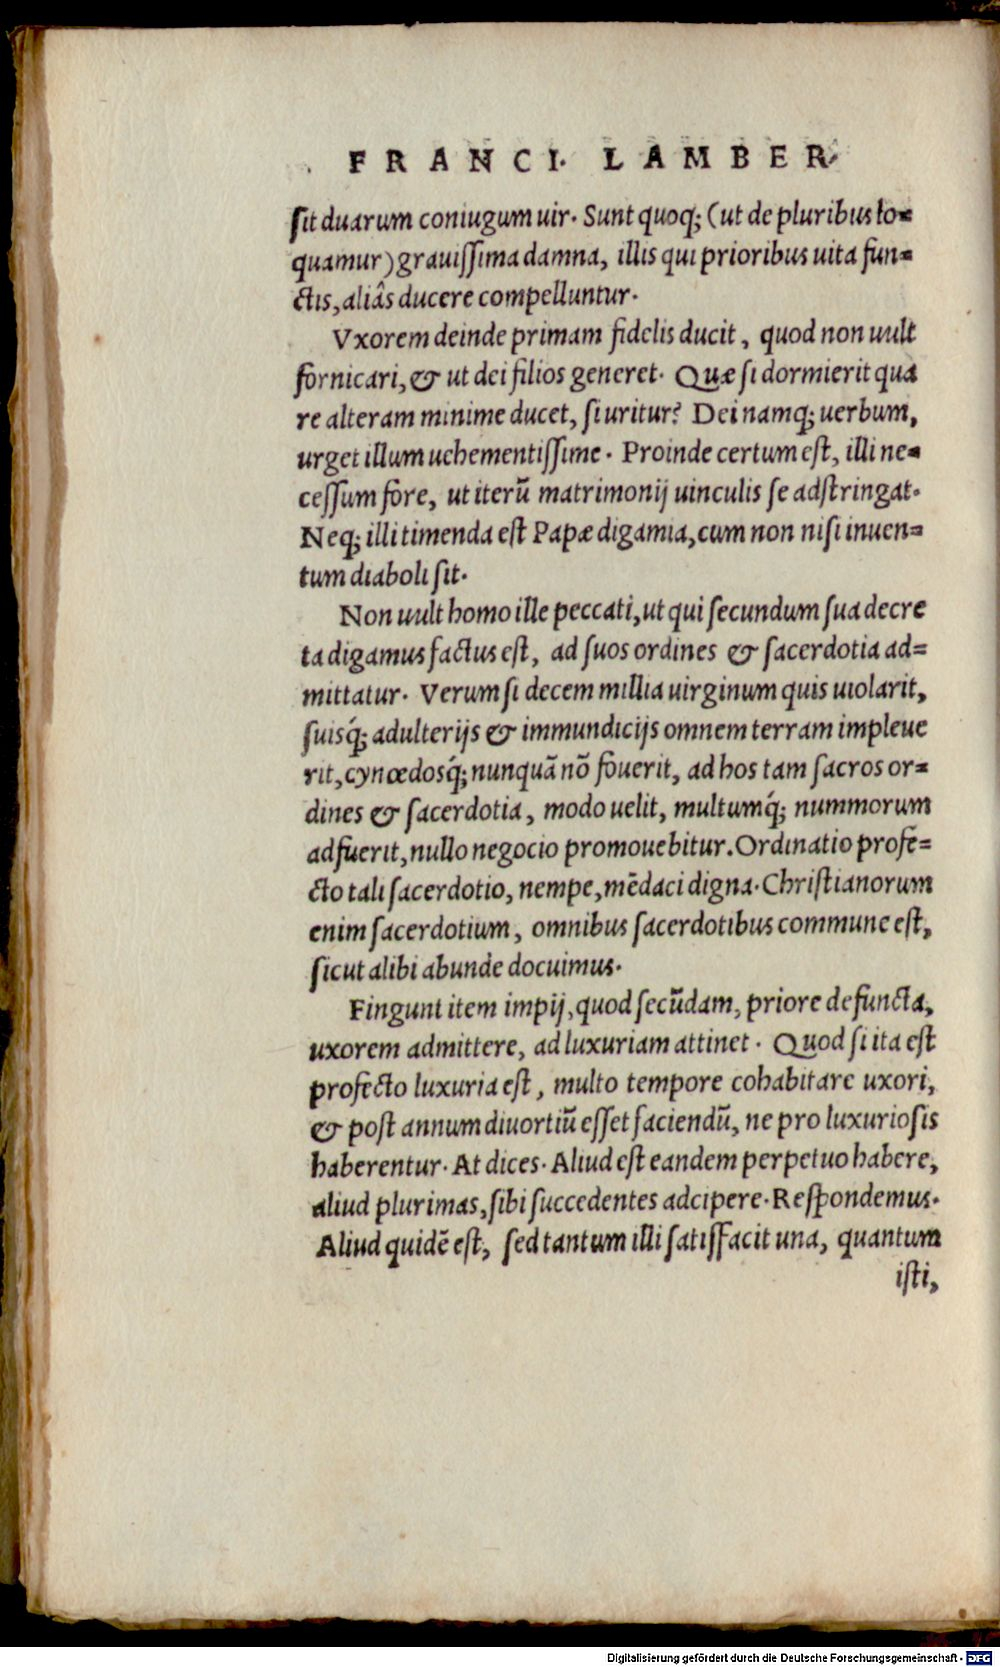 FRANCI. LAMBER.
sit duarum coniugum uir. Sunt quoq; (ut de pluribus lo=
quamur) grauissima damna, illis qui prioribus uita fun=
ctis, aliâs ducere compelluntur.
Vxorem deinde primam fidelis ducit, quod non uult
fornicari, & ut dei filios generet. Quæ si dormierit qua
re alteram minime ducet, si uritur? Dei namq; uerbum,
urget illum uehementissime. Proinde certum est, illi ne=
cessum fore, ut iterū matrimonij uinculis se adstringat.
Neq; illi timenda est Papæ digamia, cum non nisi inuen=
tum diaboli sit.
Non uult homo ille peccati, ut qui secundum sua decre
ta digamus factus est, ad suos ordines & sacerdotia ad=
mittatur. Verum si decem millia uirginum quis uiolarit,
suisq́; adulterijs & immundicijs omnem terram impleue
rit, cynœdosq́; nunquā nō fouerit, ad hos tam sacros or=
dines & sacerdotia, modo uelit, multumq́; nummorum
adfuerit, nullo negocio promouebitur. Ordinatio profe=
cto tali sacerdotio, nempe, mēdaci digna. Christianorum
enim sacerdotium, omnibus sacerdotibus commune est,
sicut alibi abunde docuimus.
Fingunt item impij, quod secūdam, priore defuncta,
uxorem admittere, ad luxuriam attinet. Quod si ita est
profecto luxuria est, multo tempore cohabitare uxori,
& post annum diuortiū esset faciendū, ne pro luxuriosis
haberentur. At dices. Aliud est eandem perpetuo habere,
aliud plurimas, sibi succedentes adcipere. Respondemus.
Aliud quidē est, sed tantum illi satisfacit una, quantum
isti,
Digitalisierung gefördert durch die Deutsche Forschungsgemeinschaft - DFG